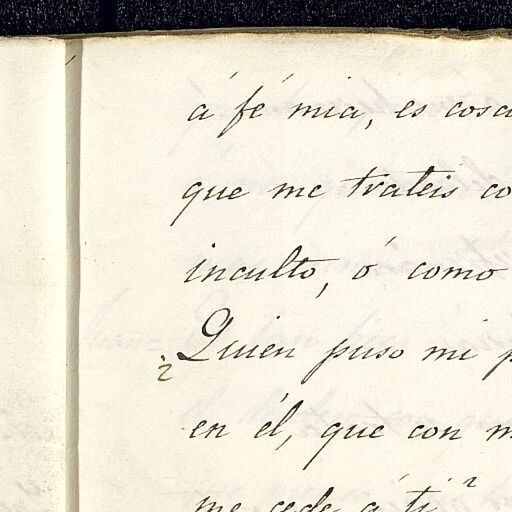 á fé mia, es cosa
que me trateis co
inculto, ó como
¿Quien puso mi p
en él, que con m
me cede á ti?